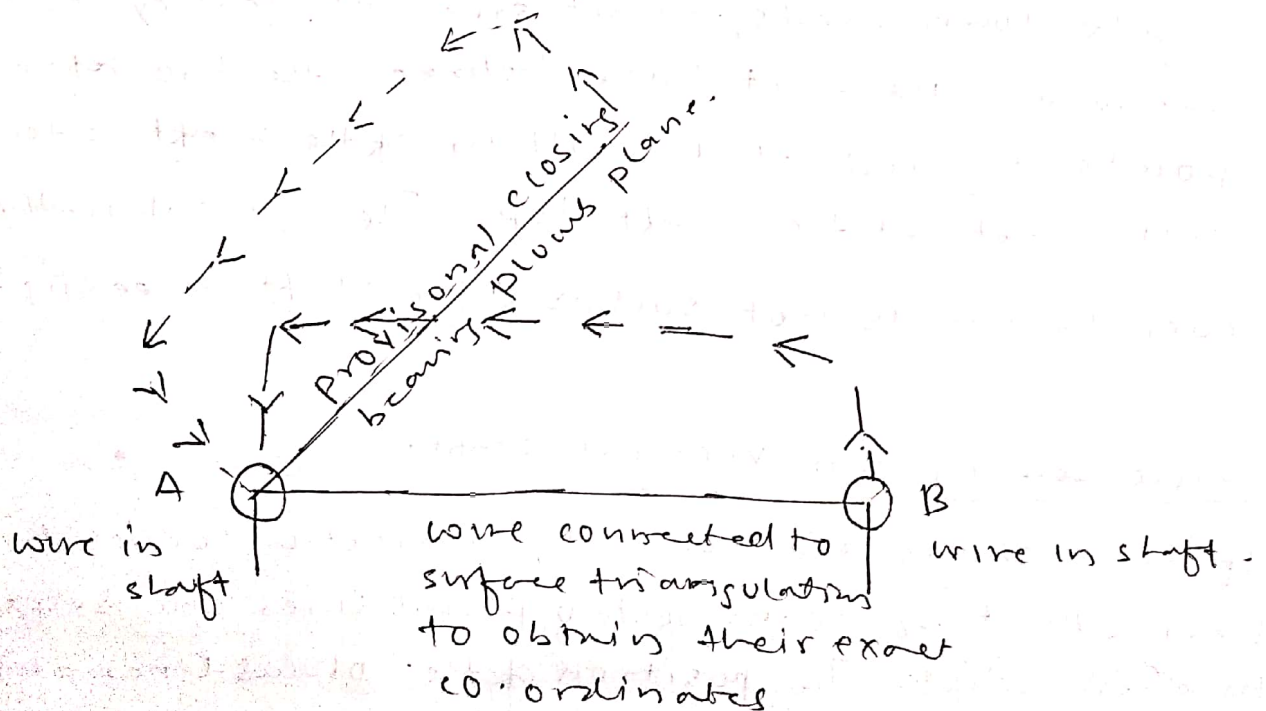 Provisonal closing
bearing plumb plane.
A
wire in
shaft
wire connected to
surface triangulation
to obtain their exact
co-ordinates
B
wire in shaft.